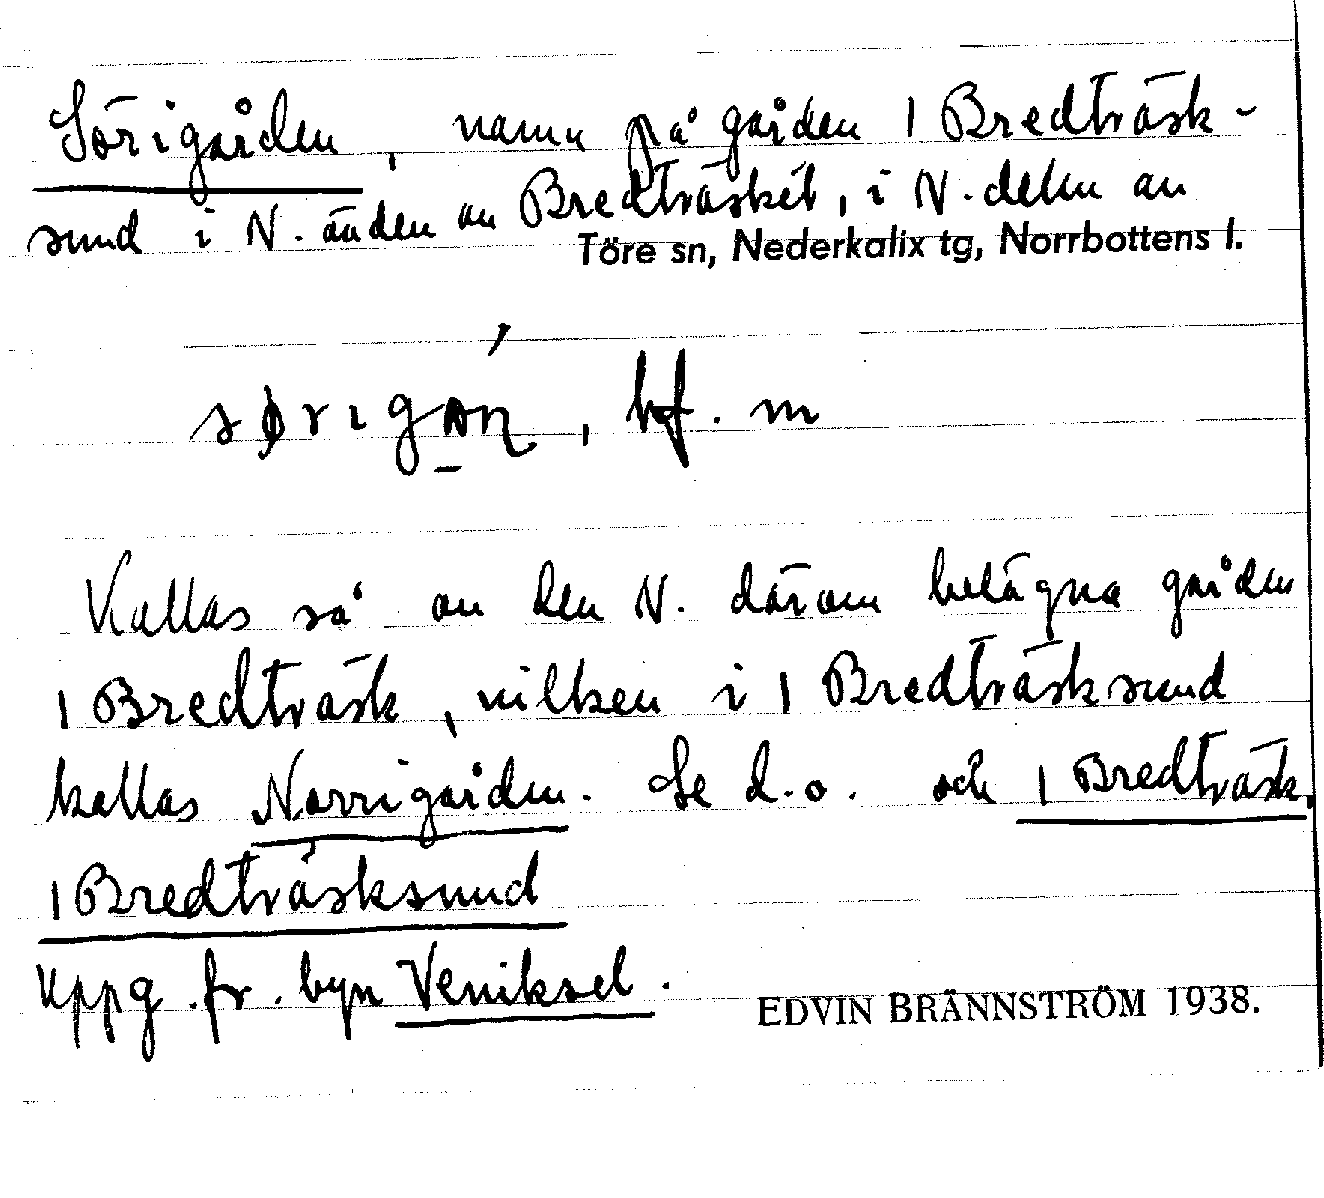 Sörigården, namn på gården 1 Bredträsk-
sund i N. änden av Bredträsket, i N. delen av
Töre sn, Nederkalix tg, Norrbottens l.
bf. m
Kallas så av den N. därom belägna gården
1 Bredträsk, vilken i 1 Bredträsksund
kallas Norrigården. Se d.o. och 1 Bredträsk,
1 Bredträsksund
Uppg. fr. byn Veniksel.
EDVIN BRÄNNSTRÖM 1938.